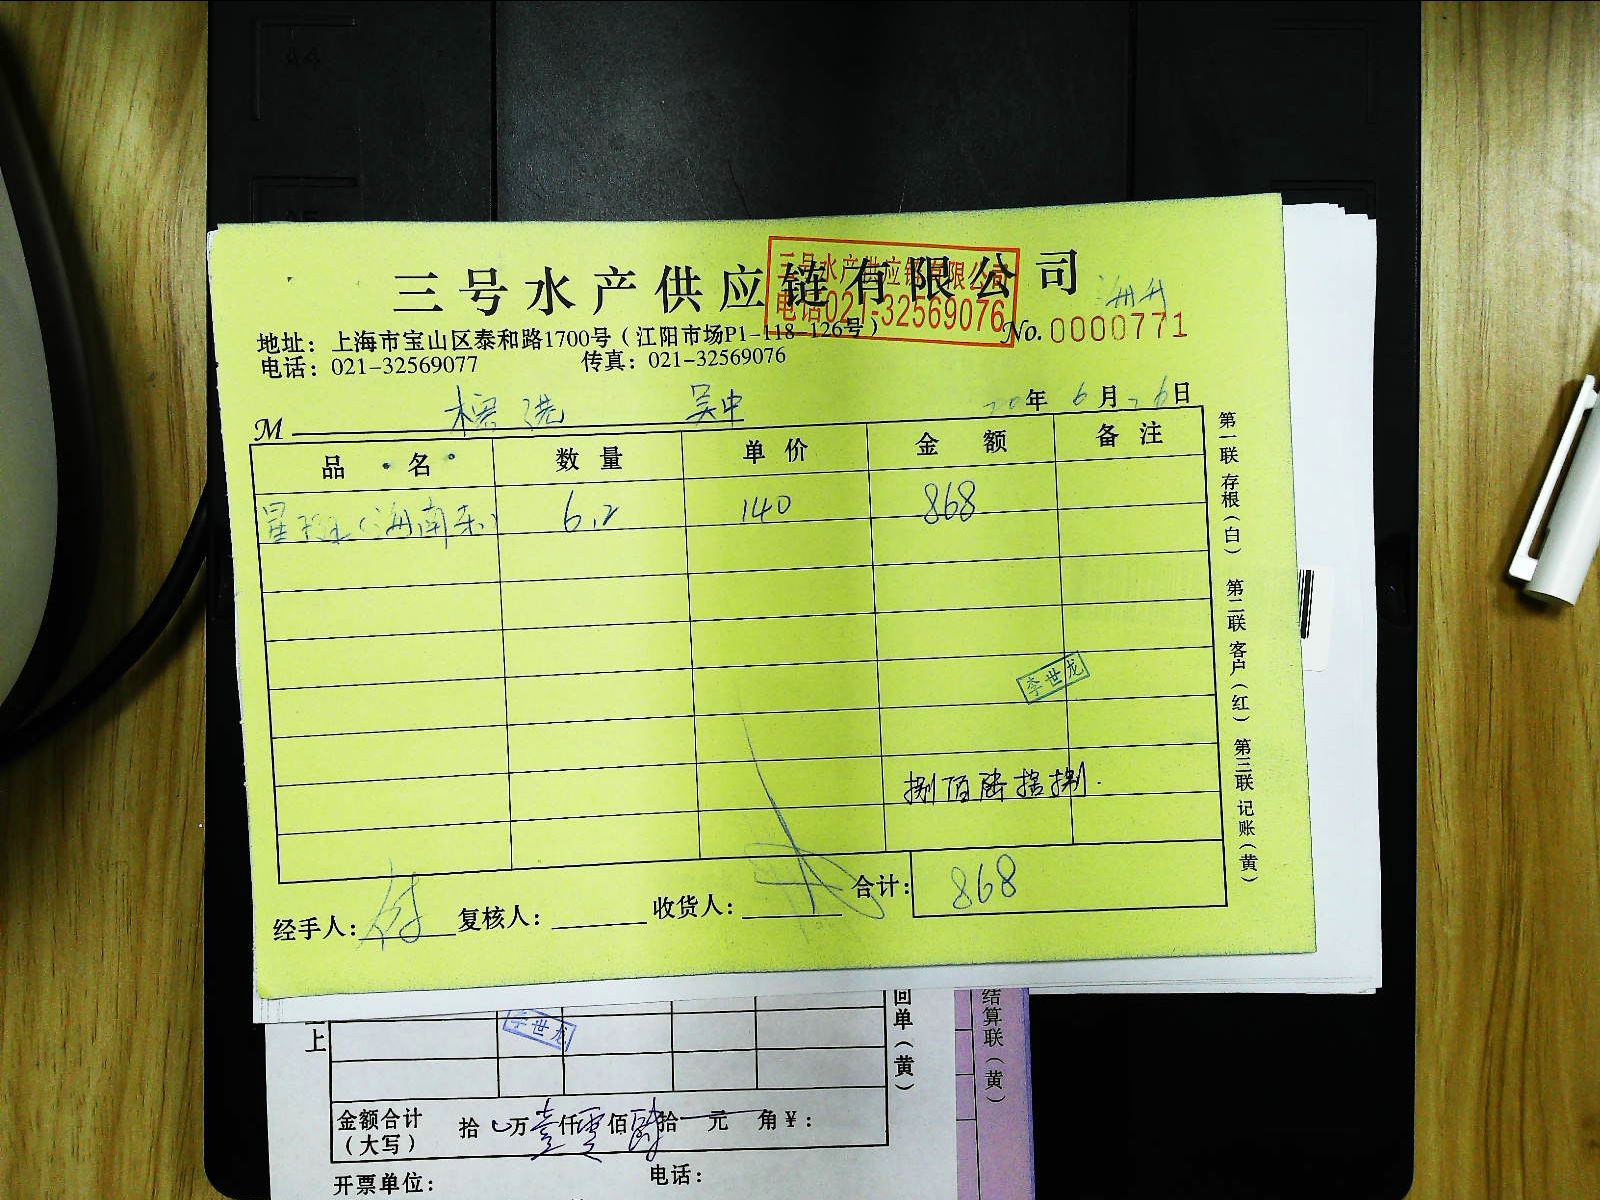 三号水产供应链有限公司
三号水产供应链有限公司
电话021-32569076
地址：上海市宝山区泰和路1700号（江阳市场P1-118-126号）
No. 0000771
电话：021-32569077 传真：021-32569076
M 吴中 20年6月26日
品名 数量 单价 金额 备注
6.2 140 868
李世龙
捌佰陆拾捌.
合计： 868
经手人： 复核人： 收货人：
第一联 存根（白） 第二联 客户（红） 第三联 记账（黄）
上
李世龙
回单（黄）
结算联（黄）
金额合计（大写） 拾 万壹仟零佰 拾 元 角 ¥：
开票单位： 电话：